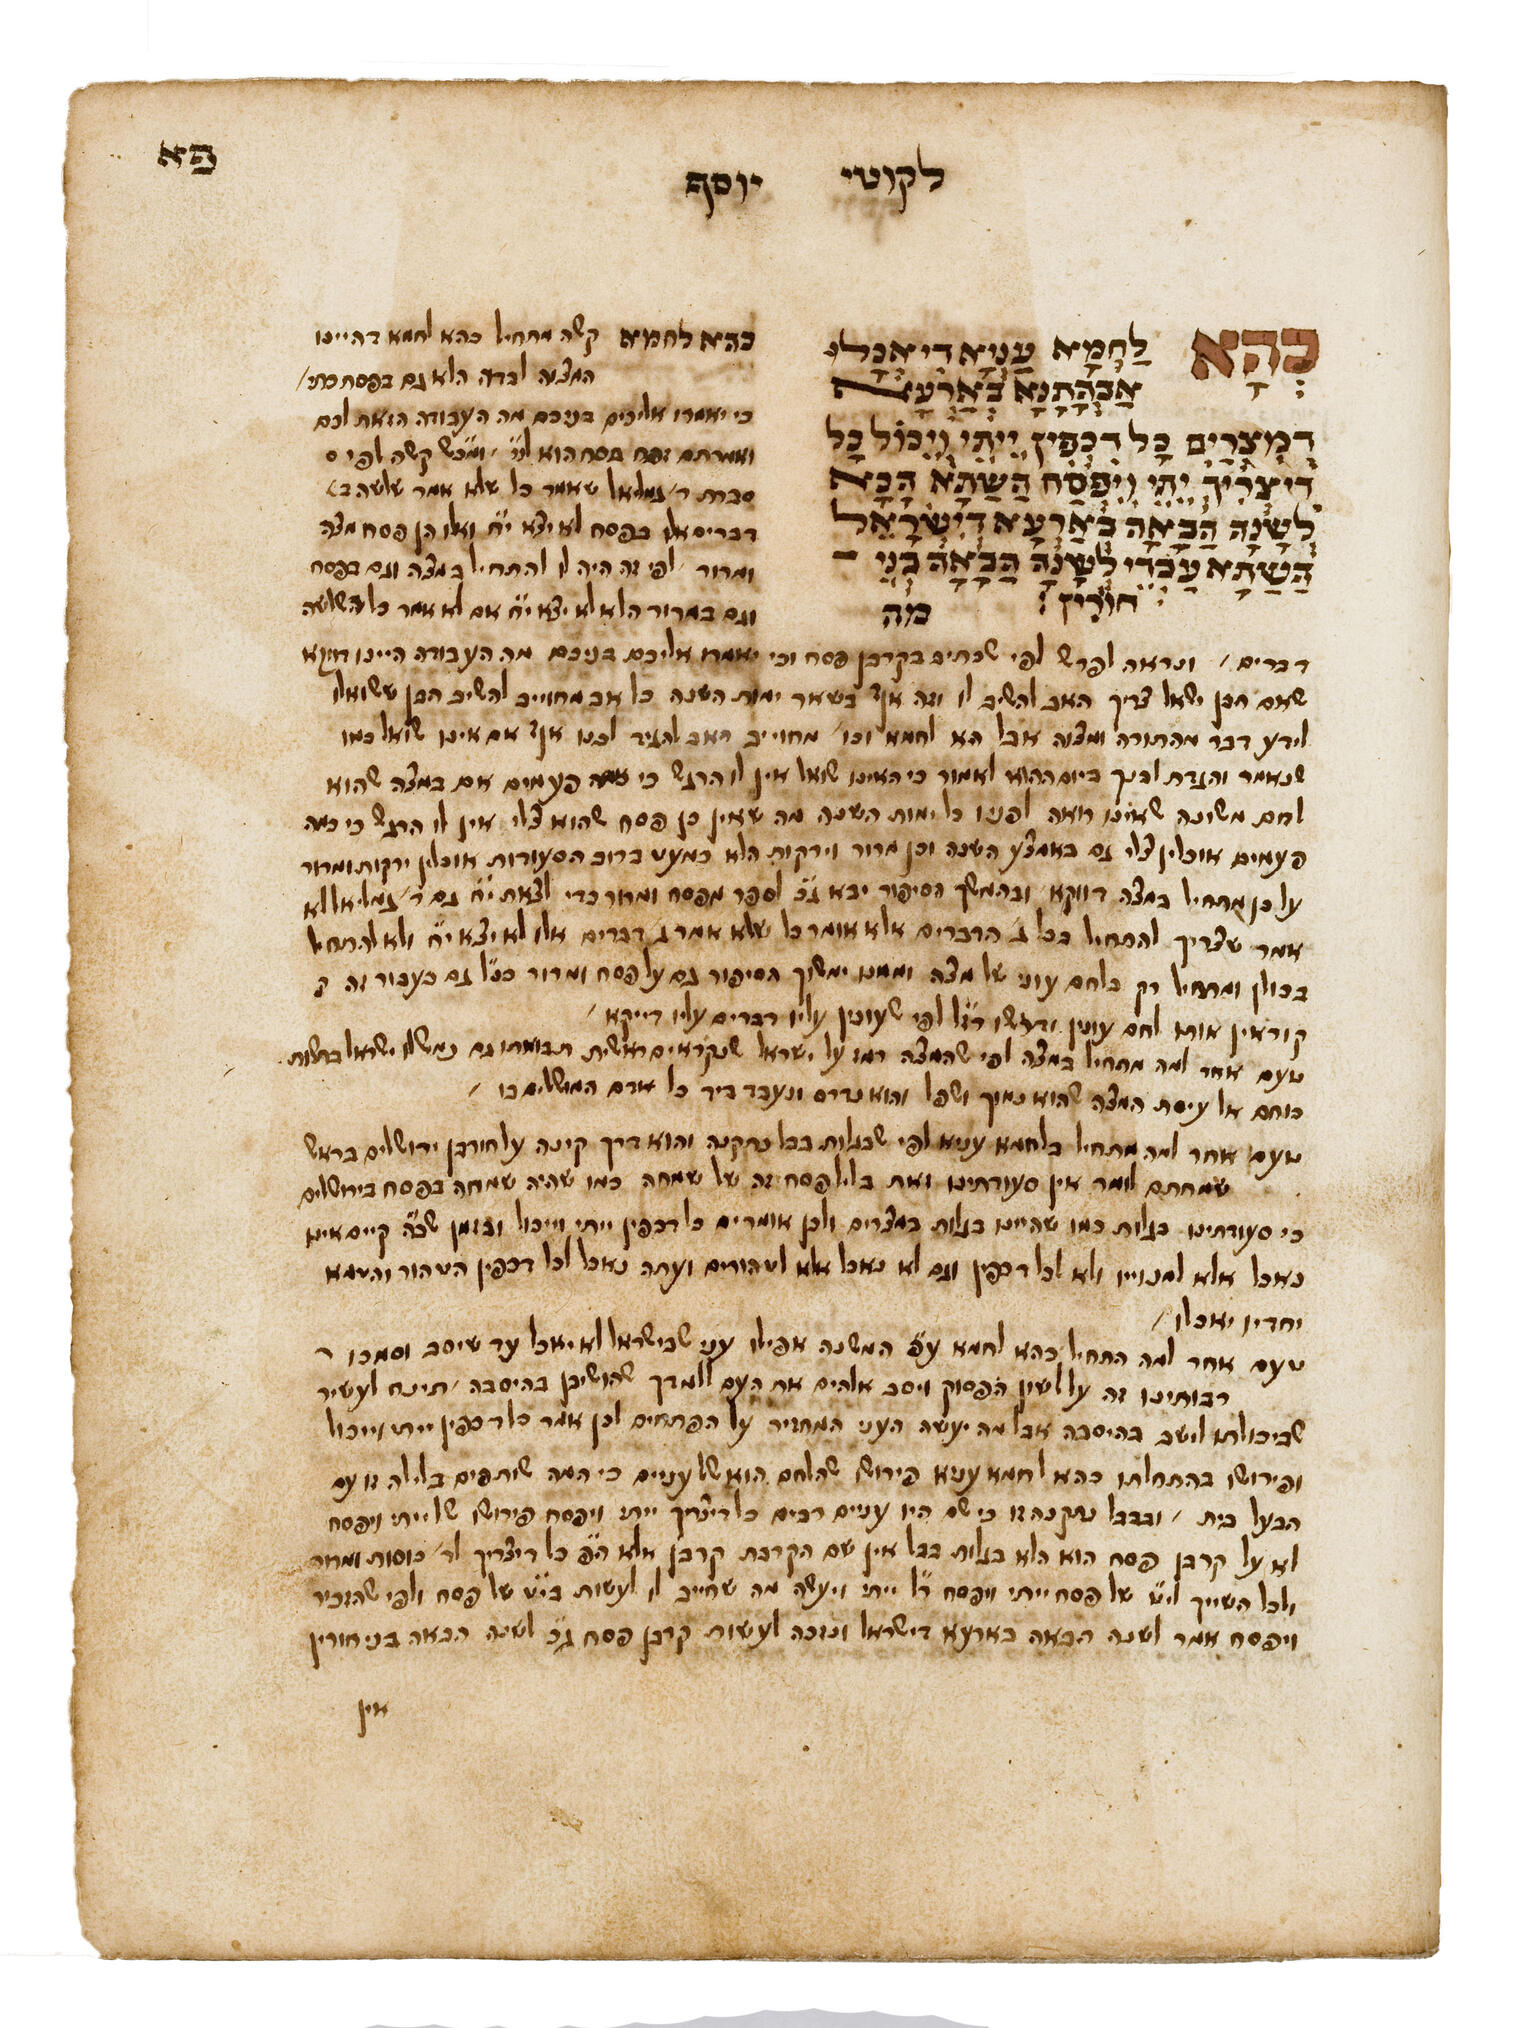 פא
לקוטי יוסף
כְּהָא לַחְמָא עַנְיָא דִי אֲכָלוּ
אַבְהָתָנָא בְּאַרְעָא
דְמִצְרַיִם כָּל דִכְפִין יֵיתֵי וְיֵכוֹל כָּל
דִי צְרִיךְ יֵתֵי וְיִפְסַח הַשַׁתָּא הָכָא
לְשָׁנָה הַבָּאָה בְּאַרְעָא דְיִשְׂרָאֵל
הַשַׁתָּא עַבְדֵי לְשָׁנָה הַבָּאָה בְּנֵי
חוֹרִין :
מה
כהא לחמא קשה מתחיל כהא לחמא דהיינו
המצה לבדה הלא גם בפסח כתי׳
כי יאמרו אליכם בניכם מה העבודה הזאת לכם
ואמרתם זבח פסח הוא לי״י ומכ״ש קשה לפי ס
סברת ר׳ גמליאל שאמר כל שלא אמר שלשה ב
דברים אלו בפסח לא יצא י״ח ואלו הן פסח מצה
ומרור לפי זה היה לו להתחיל במצה וגם בפסח
וגם במרור הלא לא יצא י״ח אם לא אמר כל השלשה
דברים / ונראה לפרש לפי שכתיב בקרבן פסח וכי יאמרו אליכם בניכם מה העבודה היינו דוקא
שאם הבן ישאל צריך האב להשיב לו וזה אף בשאר ימות השנה כל אב מחוייב להשיב הבן ששואלו
לידע דבר מהתורה ומצוה אבל הא לחמא וכו׳ מחוייב האב להגיד לבנו אף אם אינו שואל כמו
שנאמר והגדת לבנך ביום ההוא לאמור כי האינו שואל אין לו הרגש כי פעמים אם במצה שהוא
לחם משונה שאינו רואה לפניו כל ימות השנה מה שאין כן פסח שהוא צלי אין לו הרגש כי כמה
פעמים אוכלין צלי גם באמצע השנה וכן מרור וירקות הלא כמעט ברוב הסעודות אוכלין ירקות ומרור
על כן מתחיל במצה דווקא ובהמשך הסיפור יבא ג״כ לספר מפסח ומרור כדי לצאת י״ח גם ר׳ גמליאל לא
אמר שצריך להתחיל בכל ג׳ הדברים אלא אומר כל שלא אמר ג׳ דברים אלו לא יצא י״ח ולא להתחיל
בכולן ומתחיל רק בלחם עוני של מצה וממנו ימשוך הסיפור גם על פסח ומרור כנ״ל גם בעבור זה ק
קוראין אותו לחם עונין ודרשו רז״ל לפי שעונין עליו דברים עליו דייקא /
טעם אחר למה מתחיל במצה לפי שהמצה רמז על ישראל שנקראים ראשית תבואתו גם נמשלו ישראל בגלות
כוחם אל עיסת המצה שהוא נמוך ושפל והוא נרדס ונעבד ביד כל אדם המושלים בו /
טעם אחר למה מתחיל בלחמא עניא לפי שבגלות בבל נתקנה והוא דרך קינה על חורבן ירושלים בראש
שמחתם לומר אין סעודתינו זאת בליל פסח זה של שמחה כמו שהיה שמחה בפסח בירושלים
כי סעודתינו בגלות כמו שהיינו בגלות במצרים ולכן אומרים כל דכפין ייתי וייכול ובזמן שב״ה קיים אינו
נאכל אלא למנוייו ולא לכל דכפין וגם לא נאכל אלא לטהורים ועתה נאכל לכל דכפין הטהור והטמא
יחדיו יאכלו /
טעם אחר למה התחיל כהא לחמא ע״פ המשנה אפילו עני שבישראל לא יאכל עד שיסב וסמכו ר
רבותינו זה על לשון הפסוק ויסב אלהים את העם דרך שהושיבן בהיסבה תינח לעשיר
שביכולתו לישב בהיסבה אבל מה יעשה העני המחזיר על הפתחים לכן אמר כל דכפין ייתי וייכול
ופירושו בהתחלתו כהא לחמא עניא פירוש שהלחם הוא של עניים כי המה שותפים בלילה זו עם
הבעל בית / ובבבל נתקנה זו כי שם היו עניים רבים כל דיצריך ייתי ויפסח פירוש של ייתי ויפסח
לא על קרבן פסח הוא הלא בגלות בבל אין שם הקרבת קרבן אלא ה״פ כל דיצריך לד׳ כוסות ומרור
ולכל השייך לי״ט של פסח ייתי ויפסח ר״ל ייתי ויעשה מה שחייב לו לעשות בי״ט של פסח ולפי שהזכיר
ויפסח אמר לשנה הבאה בארעא דישראל ונזכה לעשות קרבן פסח ג״כ לשנה הבאה בני חורין
אין